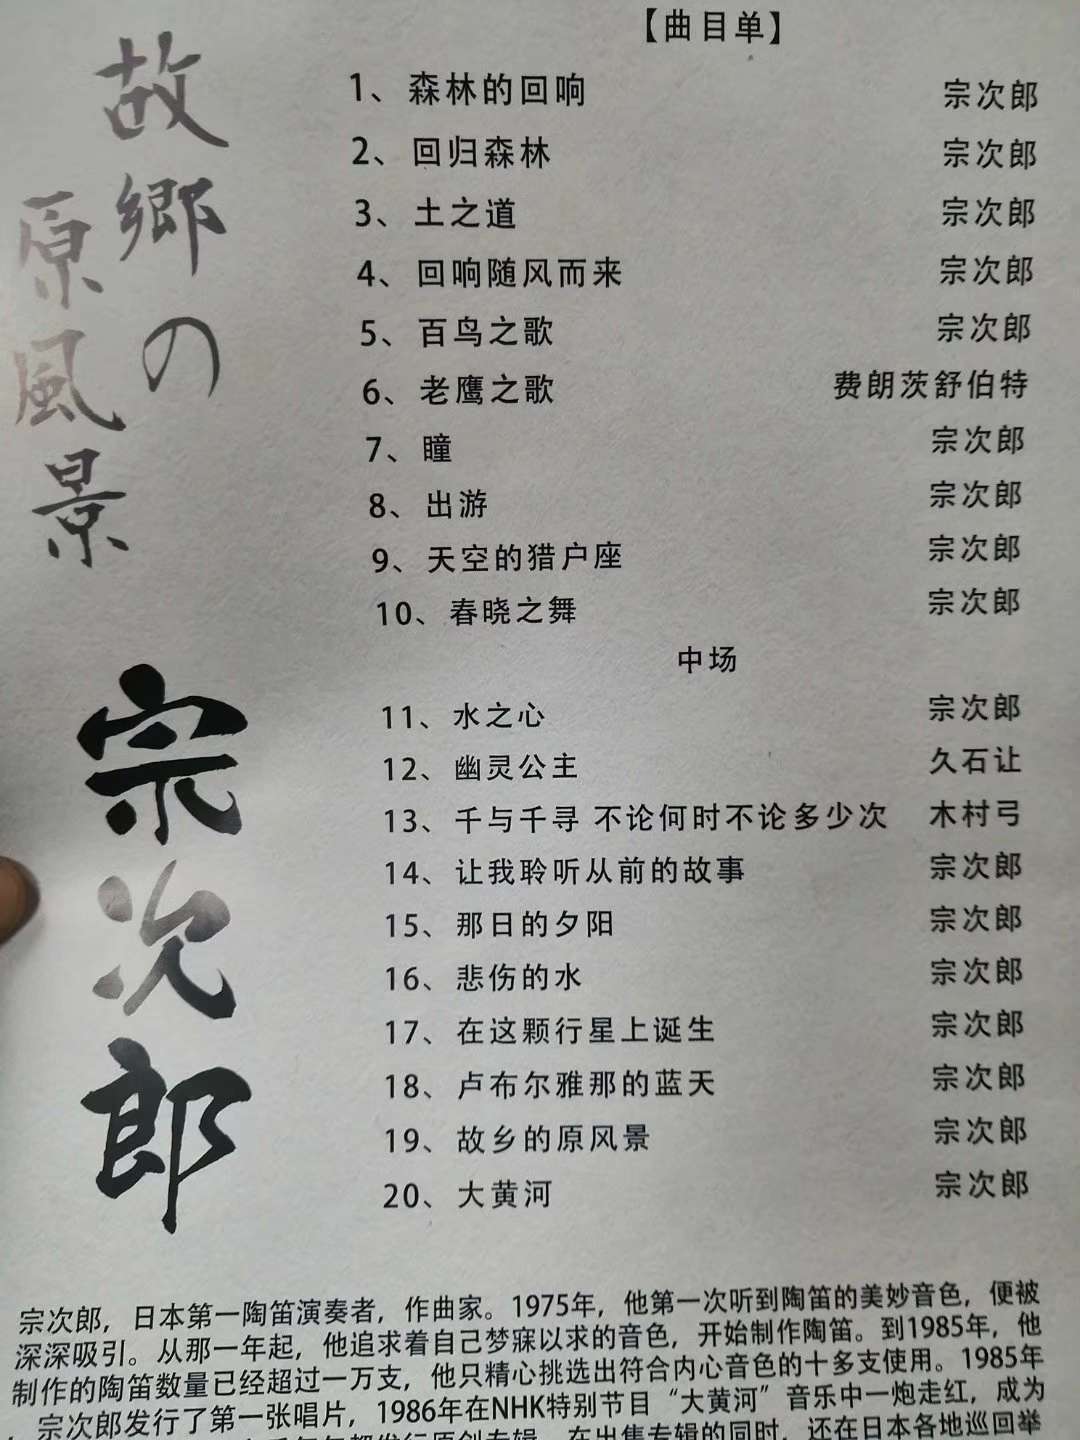 故郷の
原風景
宗次郎
【曲目单】
1、森林的回响 宗次郎
2、回归森林 宗次郎
3、土之道 宗次郎
4、回响随风而来 宗次郎
5、百鸟之歌 宗次郎
6、老鹰之歌 费朗茨舒伯特
7、瞳 宗次郎
8、出游 宗次郎
9、天空的猎户座 宗次郎
10、春晓之舞 宗次郎
中场
11、水之心 宗次郎
12、幽灵公主 久石让
13、千与千寻 不论何时不论多少次 木村弓
14、让我聆听从前的故事 宗次郎
15、那日的夕阳 宗次郎
16、悲伤的水 宗次郎
17、在这颗行星上诞生 宗次郎
18、卢布尔雅那的蓝天 宗次郎
19、故乡的原风景 宗次郎
20、大黄河 宗次郎
宗次郎，日本第一陶笛演奏者，作曲家。1975年，他第一次听到陶笛的美妙音色，便被
深深吸引。从那一年起，他追求着自己梦寐以求的音色，开始制作陶笛。到1985年，他
制作的陶笛数量已经超过一万支，他只精心挑选出符合内心音色的十多支使用。1985年
，宗次郎发行了第一张唱片，1986年在NHK特别节目“大黄河”音乐中一炮走红，成为
年都发行原创专辑，在出售专辑的同时，还在日本各地巡回举